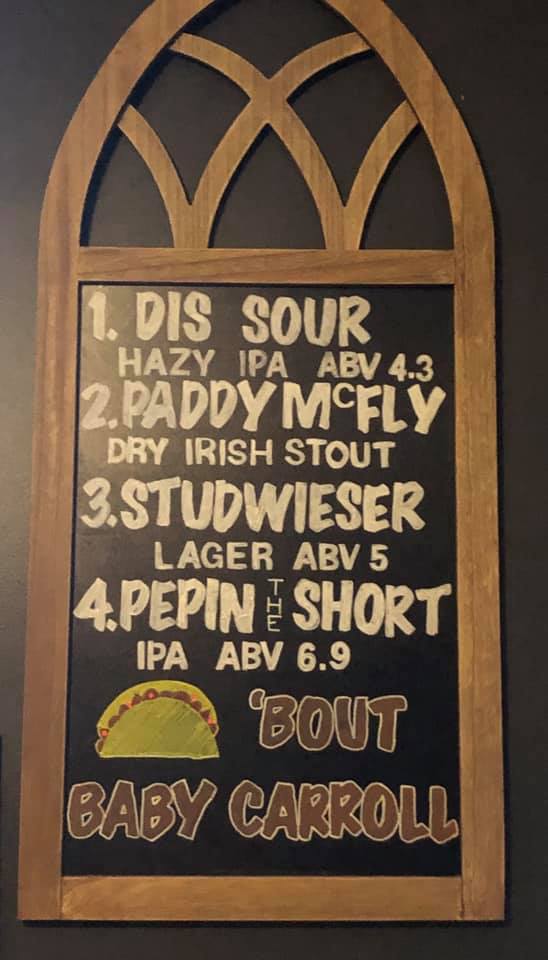 1. DIS SOUR
HAZY IPA ABV 4.3
2. PADDY McFLY
DRY IRISH STOUT
3. STUDWIESER
LAGER ABV 5
4. PEPIN THE SHORT
IPA ABV 6.9
'BOUT
BABY CARROLL